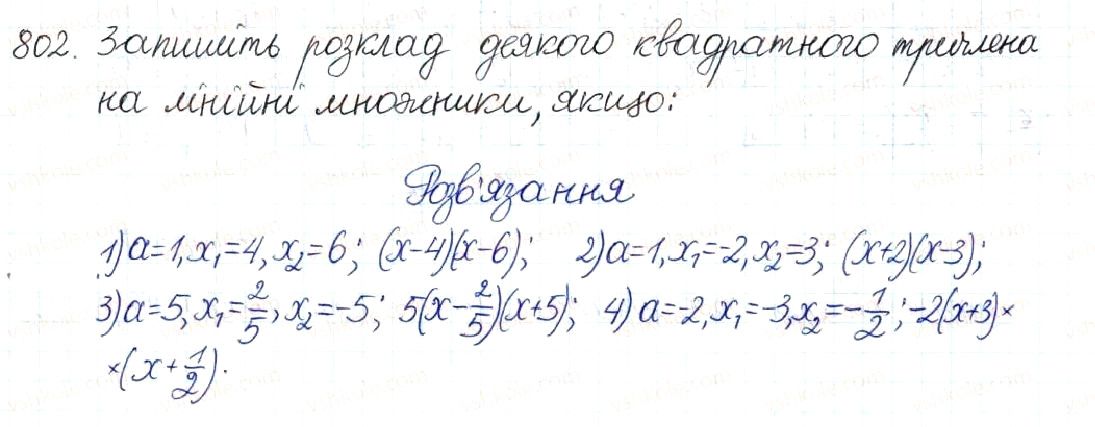 802. Запишіть розклад деякого квадратного тричлена
на лінійні множники, якщо:
Розв'язання
1) a=1, x₁=4, x₂=6; (x-4)(x-6); 2) a=1, x₁=-2, x₂=3; (x+2)(x-3);
3) a=5, x₁=2/5, x₂=-5; 5(x-2/5)(x+5); 4) a=-2, x₁=-3, x₂=-1/2; -2(x+3)×
×(x+1/2).